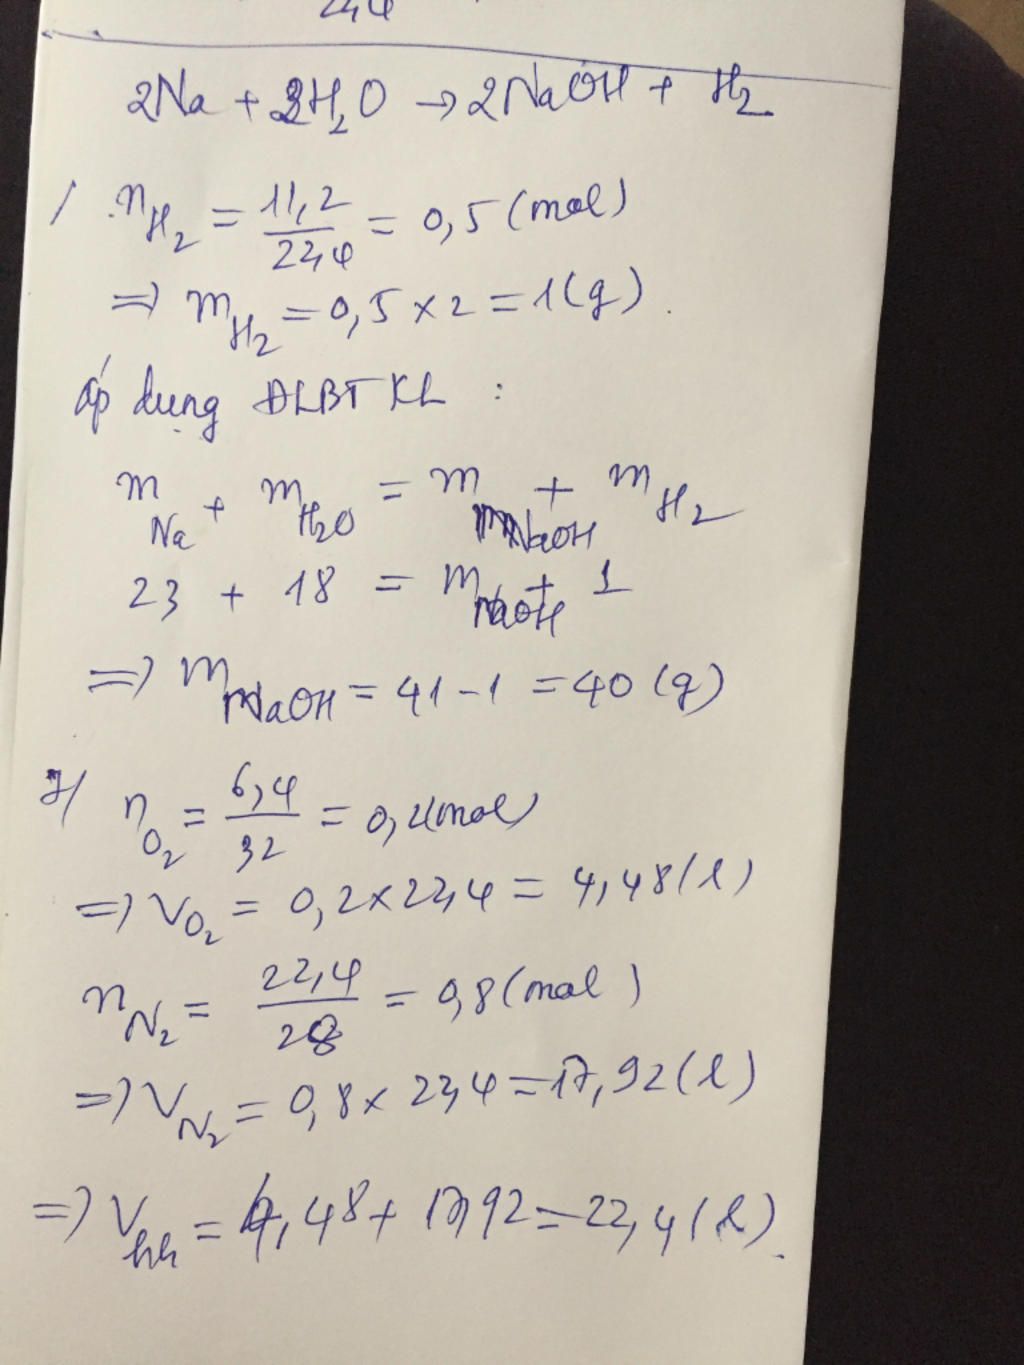 22,4
2Na + 2H₂O → 2NaOH + H₂
/ n_H₂ = 11,2/22,4 = 0,5 (mol)
=> m_H₂ = 0,5 x 2 = 1 (g).
áp dụng ĐLBTKL :
m_Na + m_H₂O = m_NaOH + m_H₂
23 + 18 = m_NaOH + 1
=> m_NaOH = 41 - 1 = 40 (g)
n_O₂ = 6,4/32 = 0,2 (mol)
=> V_O₂ = 0,2 x 22,4 = 4,48 (l)
n_N₂ = 22,4/28 = 0,8 (mol)
=> V_N₂ = 0,8 x 22,4 = 17,92 (l)
=> V_hh = 4,48 + 17,92 = 22,4 (l).